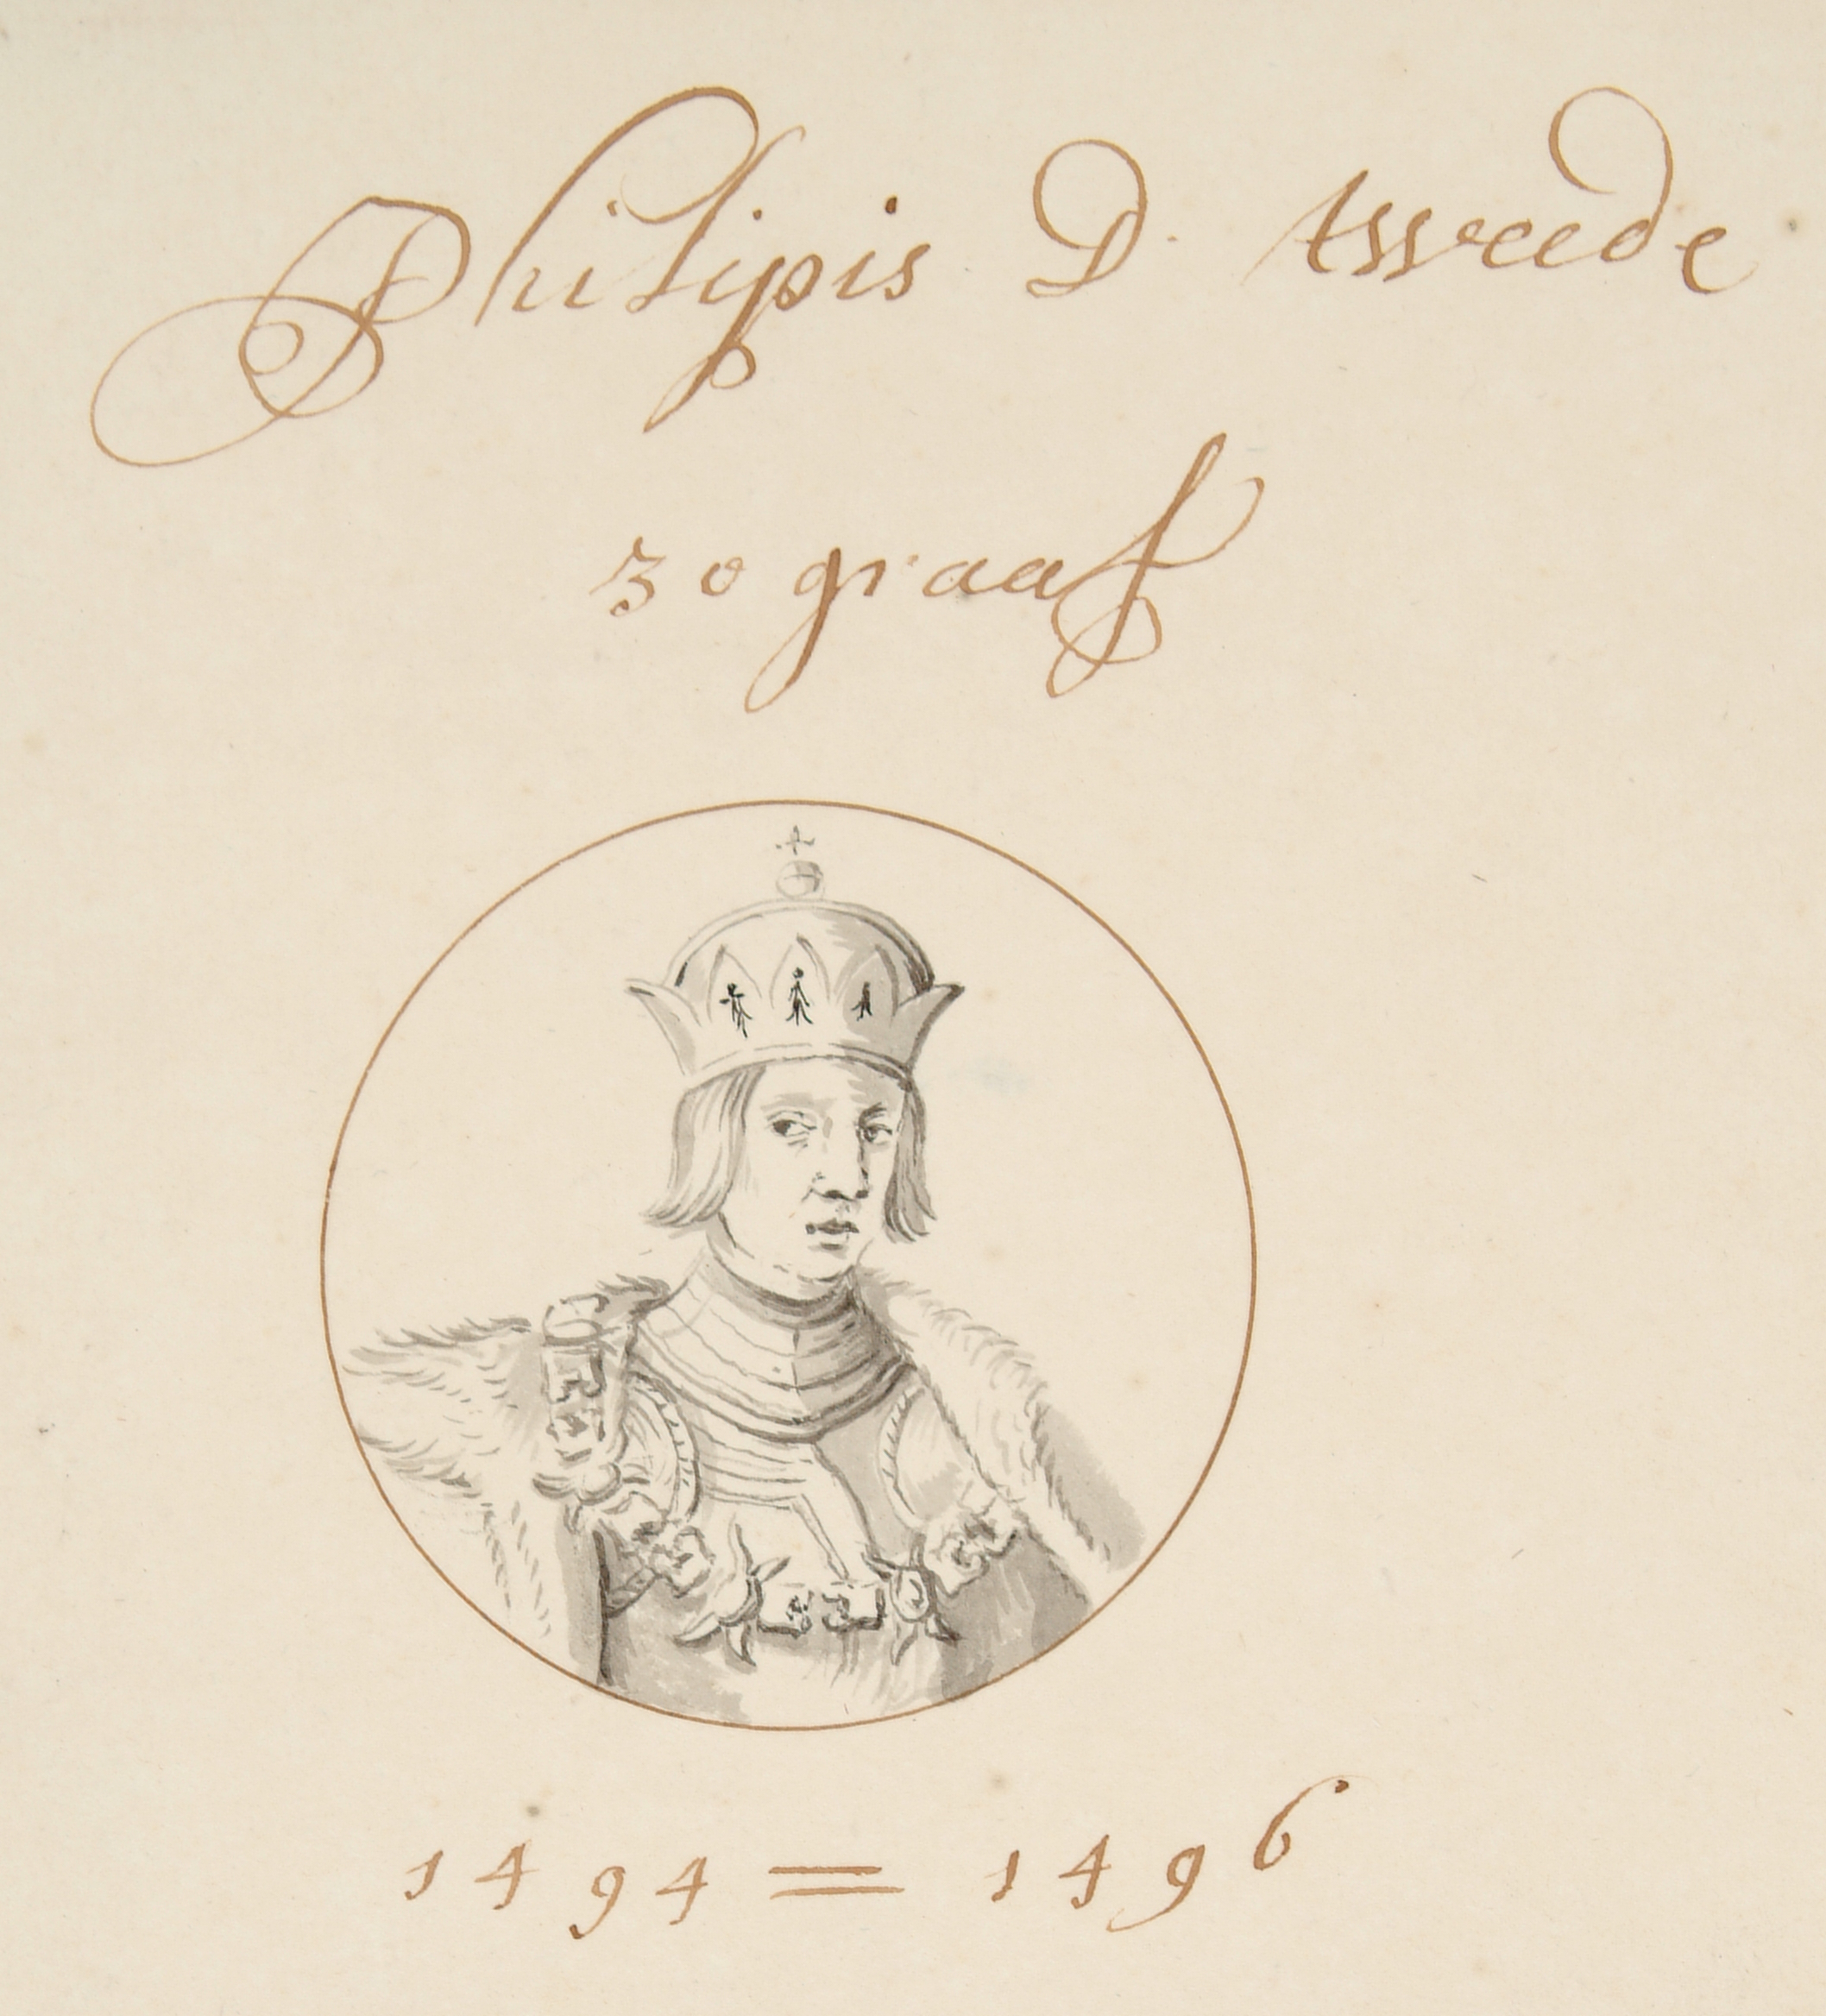 Philipis D. tweede
30 graaf
1494 = 1496